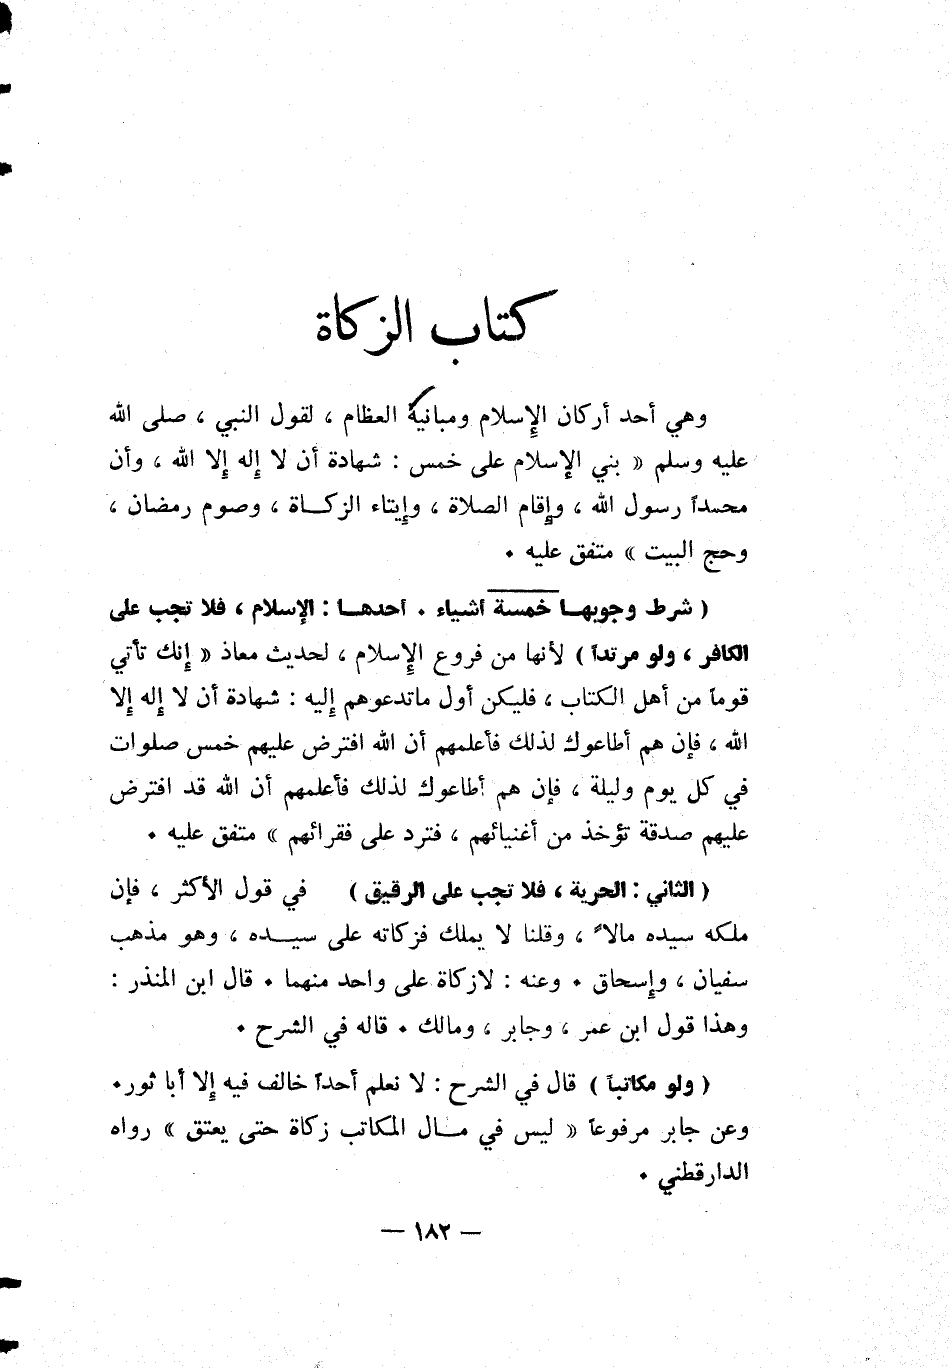 كتاب الزكاة
وهي أحد أركان الإسلام ومبانية العظام ، لقول النبي ، صلى الله
عليه وسلم « بني الإسلام على خمس : شهادة أن لا إله إلا الله ، وأن
محمداً رسول الله ، وإقام الصلاة ، وإيتاء الزكـاة ، وصوم رمضان ،
وحج البيت » متفق عليه .
( شرط وجوبهـا خمسة أشياء . أحدهـا : الإسلام ، فلا تجب على
الكافر ، ولو مرتداً ) لأنها من فروع الإسلام ، لحديث معاذ « إنك تأتي
قوماً من أهل الكتاب ، فليكن أول ماتدعوهم إليه : شهادة أن لا إله إلا
الله ، فإن هم أطاعوك لذلك فأعلمهم أن الله افترض عليهم خمس صلوات
في كل يوم وليلة ، فإن هم أطاعوك لذلك فأعلمهم أن الله قد افترض
عليهم صدقة تؤخذ من أغنيائهم ، فترد على فقرائهم » متفق عليه .
( الثاني : الحرية ، فلا تجب على الرقيق ) في قول الأكثر ، فإن
ملكه سيده مالاً ، وقلنا لا يملك فزكاته على سيـده ، وهو مذهب
سفيان ، وإسحاق . وعنه : لازكاة على واحد منهما . قال ابن المنذر :
وهذا قول ابن عمر ، وجابر ، ومالك . قاله في الشرح .
( ولو مكاتباً ) قال في الشرح : لا نعلم أحداً خالف فيه إلا أبا ثور .
وعن جابر مرفوعاً « ليس في مـال المكاتب زكاة حتى يعتق » رواه
الدارقطني .
— ١٨٢ —